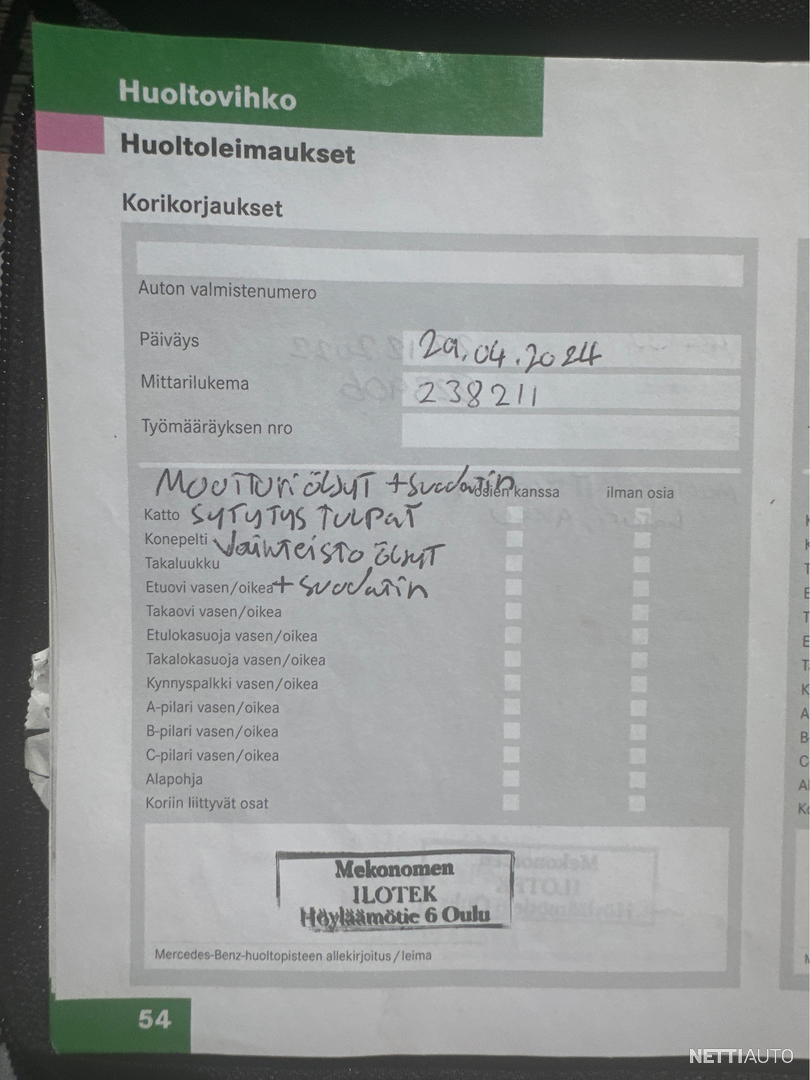 Huoltovihko
Huoltoleimaukset
Korikorjaukset
Auton valmistenumero
Päiväys 29.04.2024
Mittarilukema 238211
Työmääräyksen nro
Moottori öljyt + suodatin
osien kanssa ilman osia
Katto sytytys tulpat
Konepelti Vaihteisto öljyt
Takaluukku
Etuovi vasen/oikea + suodatin
Takaovi vasen/oikea
Etulokasuoja vasen/oikea
Takalokasuoja vasen/oikea
Kynnyspalkki vasen/oikea
A-pilari vasen/oikea
B-pilari vasen/oikea
C-pilari vasen/oikea
Alapohja
Koriin liittyvät osat
Mekonomen
ILOTEK
Höyläämötie 6 Oulu
Mercedes-Benz-huoltopisteen allekirjoitus/leima
54
NETTIAUTO